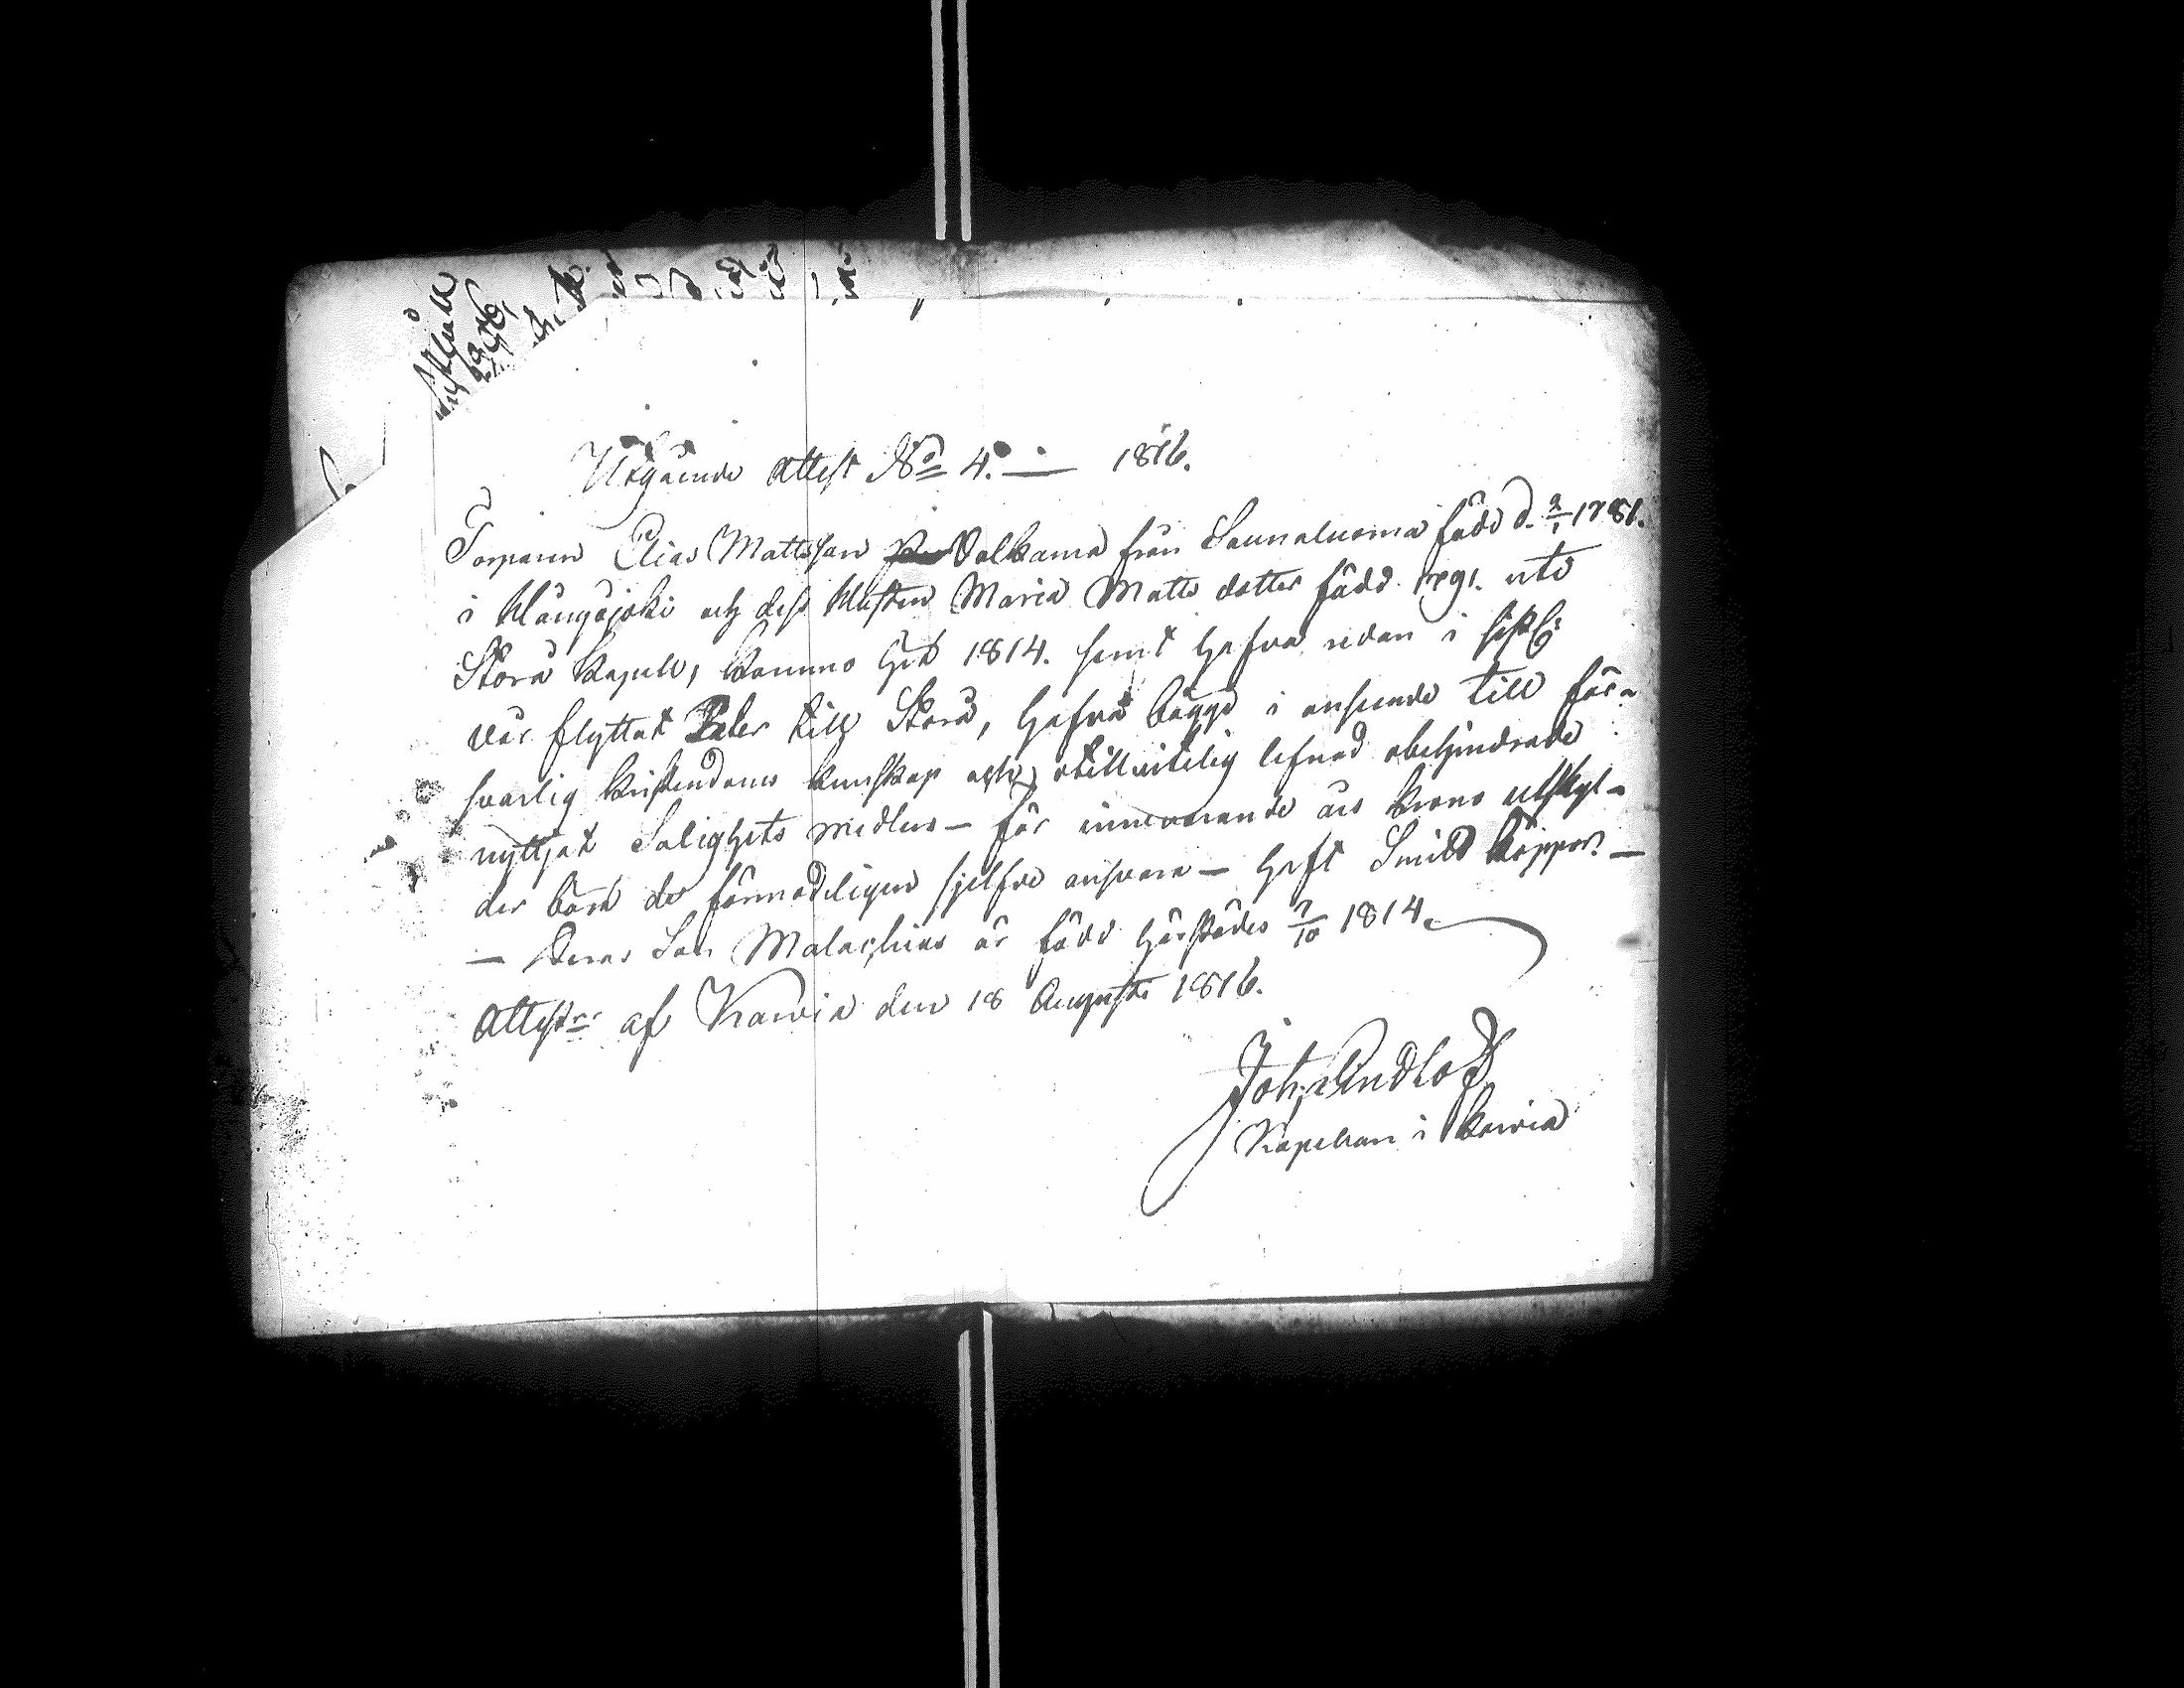 Utgående Attest No 4. — 1816.
Torparen Elias Mattsson Valkama från Saunaluoma född d. 2/1 1781.
i Kångasjoki och dess Hustru Maria Matts dotter född 1791. uti
Storå Kapell, komne hit 1814. samt hafva redan i sistl:
vår flyttat till Storå, hafva bägge i anseende till för-
svarlig kristendoms kunskap och otillvitelig lefnad obehindrade
nyttjat Salighets medlen — för innevarande års krono utskyl-
der böra de förmodeligen sjelfve ansvara — haft Smitt koppor. —
— Deras Son Malachias är född härstädes 7/10 1814.
Attest:r af Karvia den 18 Augusti 1816.
Joh: Lindlöf
Kapellan i Karvia